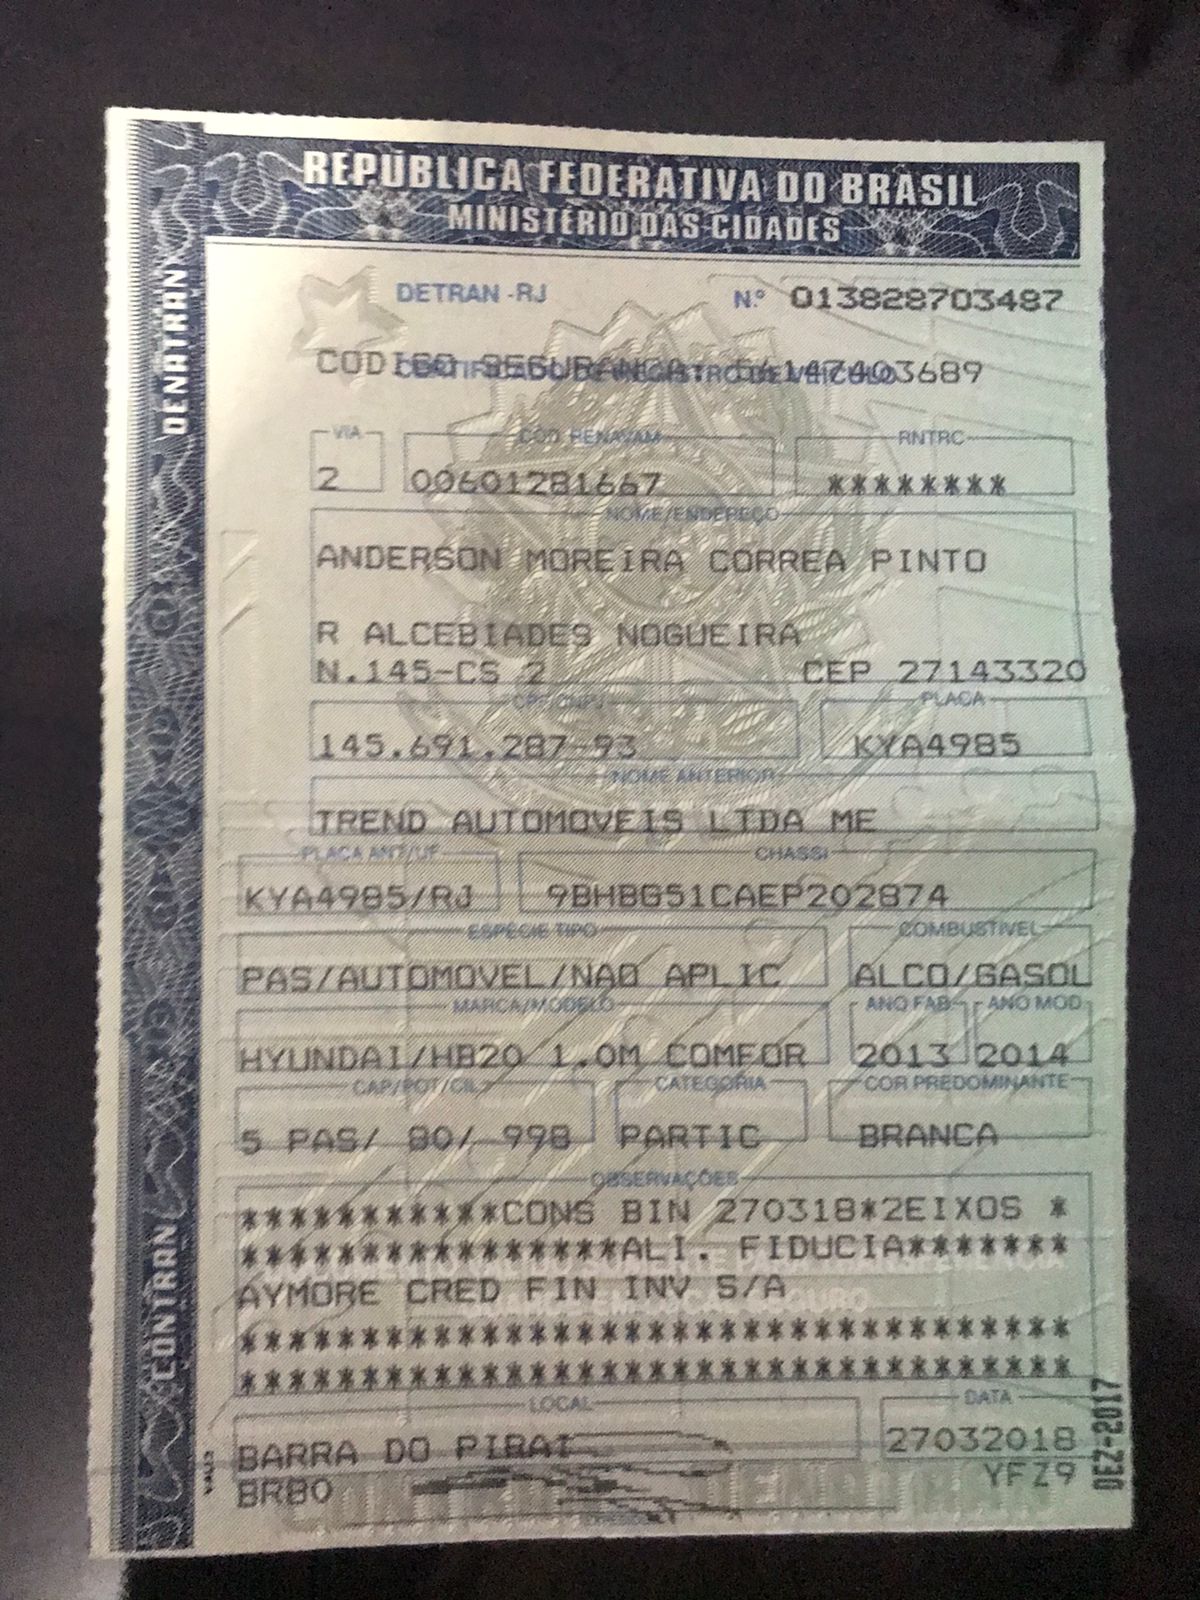 REPÚBLICA FEDERATIVA DO BRASIL
MINISTÉRIO DAS CIDADES
DENATRAN
CONTRAN
DETRAN -RJ Nº 013828703487
CERTIFICADO DE REGISTRO DE VEÍCULO
CODIGO SEGURANCA: 56147403689
VIA COD. RENAVAM RNTRC
2 00601281667 ********
NOME/ENDEREÇO
ANDERSON MOREIRA CORREA PINTO
R ALCEBIADES NOGUEIRA
N.145-CS 2 CEP 27143320
CPF/CNPJ PLACA
145.691.287-93 KYA4985
NOME ANTERIOR
TREND AUTOMOVEIS LTDA ME
PLACA ANT/UF CHASSI
KYA4985/RJ 9BHBG51CAEP202874
ESPÉCIE TIPO COMBUSTÍVEL
PAS/AUTOMOVEL/NAO APLIC ALCO/GASOL
MARCA/MODELO ANO FAB ANO MOD
HYUNDAI/HB20 1.0M COMFOR 2013 2014
CAP/POT/CIL CATEGORIA COR PREDOMINANTE
5 PAS/ 80/ 998 PARTIC BRANCA
OBSERVAÇÕES
***********CONS BIN 270318*2EIXOS *
****************ALI. FIDUCIA*******
AYMORE CRED FIN INV S/A
***********************************
***********************************
LOCAL DATA
BARRA DO PIRAI 27032018
BRBO YFZ9
DEZ-2017